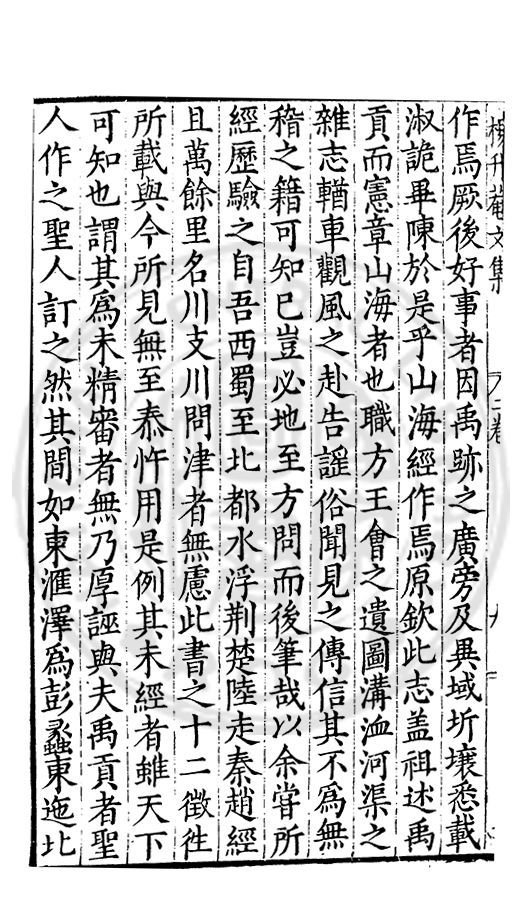 楊升菴文集 二卷
作焉厥後好事者因禹跡之廣旁及異域圻壤悉載
淑詭畢陳於是乎山海經作焉原欽此志盖祖述禹
貢而憲章山海者也職方王會之遺圖溝洫河渠之
雜志輶車觀風之赴告謡俗聞見之傳信其不爲無
稽之籍可知已豈必地至方問而後筆哉以余甞所
經歷驗之自吾西蜀至北都水浮荆楚陸走秦趙經
且萬餘里名川支川問津者無慮此書之十二徵徃
所載與今所見無至泰忤用是例其未經者雖天下
可知也謂其爲未精審者無乃厚誣與夫禹貢者聖
人作之聖人訂之然其間如東滙澤爲彭蠡東迤北